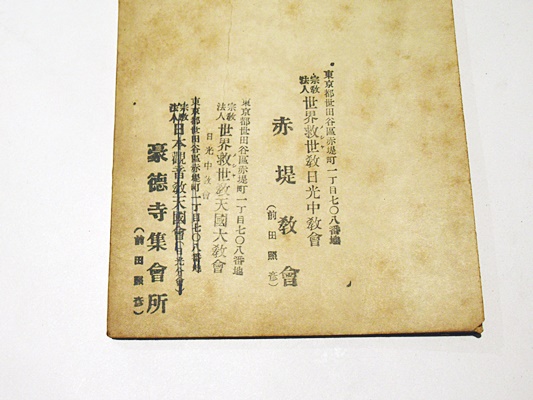 東京都世田谷區赤堤町一丁目七〇八番地
宗教法人 世界救世教日光中教會
赤堤教會
(前田照彦)
東京都世田谷區赤堤町一丁目七〇八番地
宗教法人 世界救世教天國大教會
日光中教會
東京都世田谷區赤堤町一丁目七〇八番地
宗教法人 日本觀音教天國會(日光分會)
豪德寺集會所
(前田照彦)